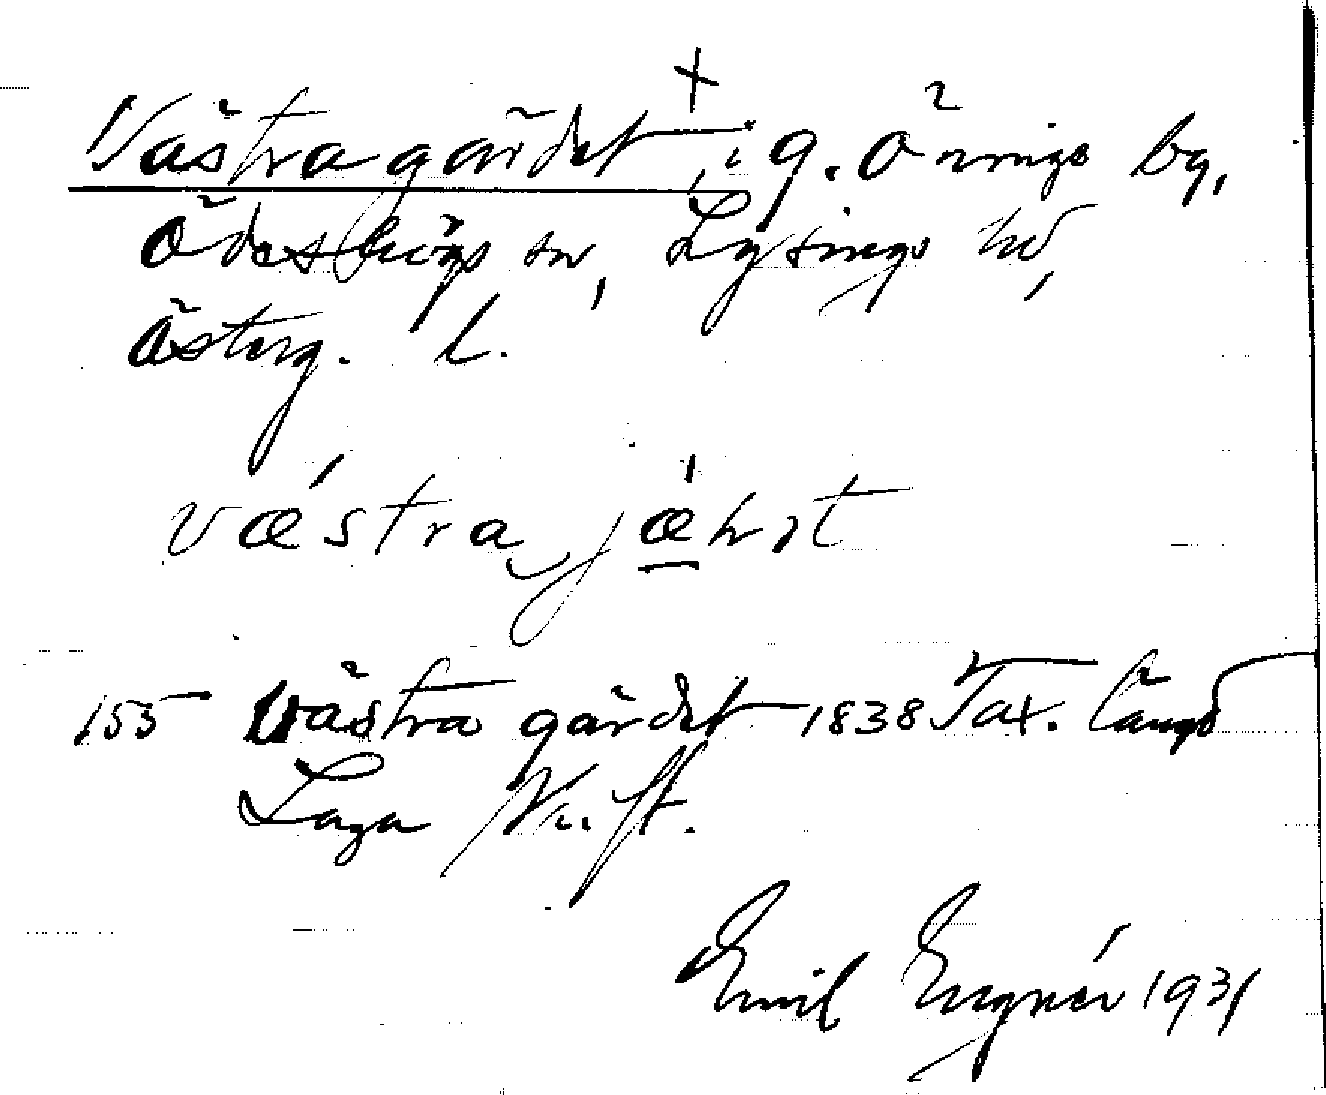 +
Västra gärdet, i g. Önnings by,
Ödeshögs sn, Lysings hd,
Österg. l.
væ´stra jæ´ṛət
155 Västra gärdet 1838 Tax. Längd
Laga skift.
Emil Engnér 1931